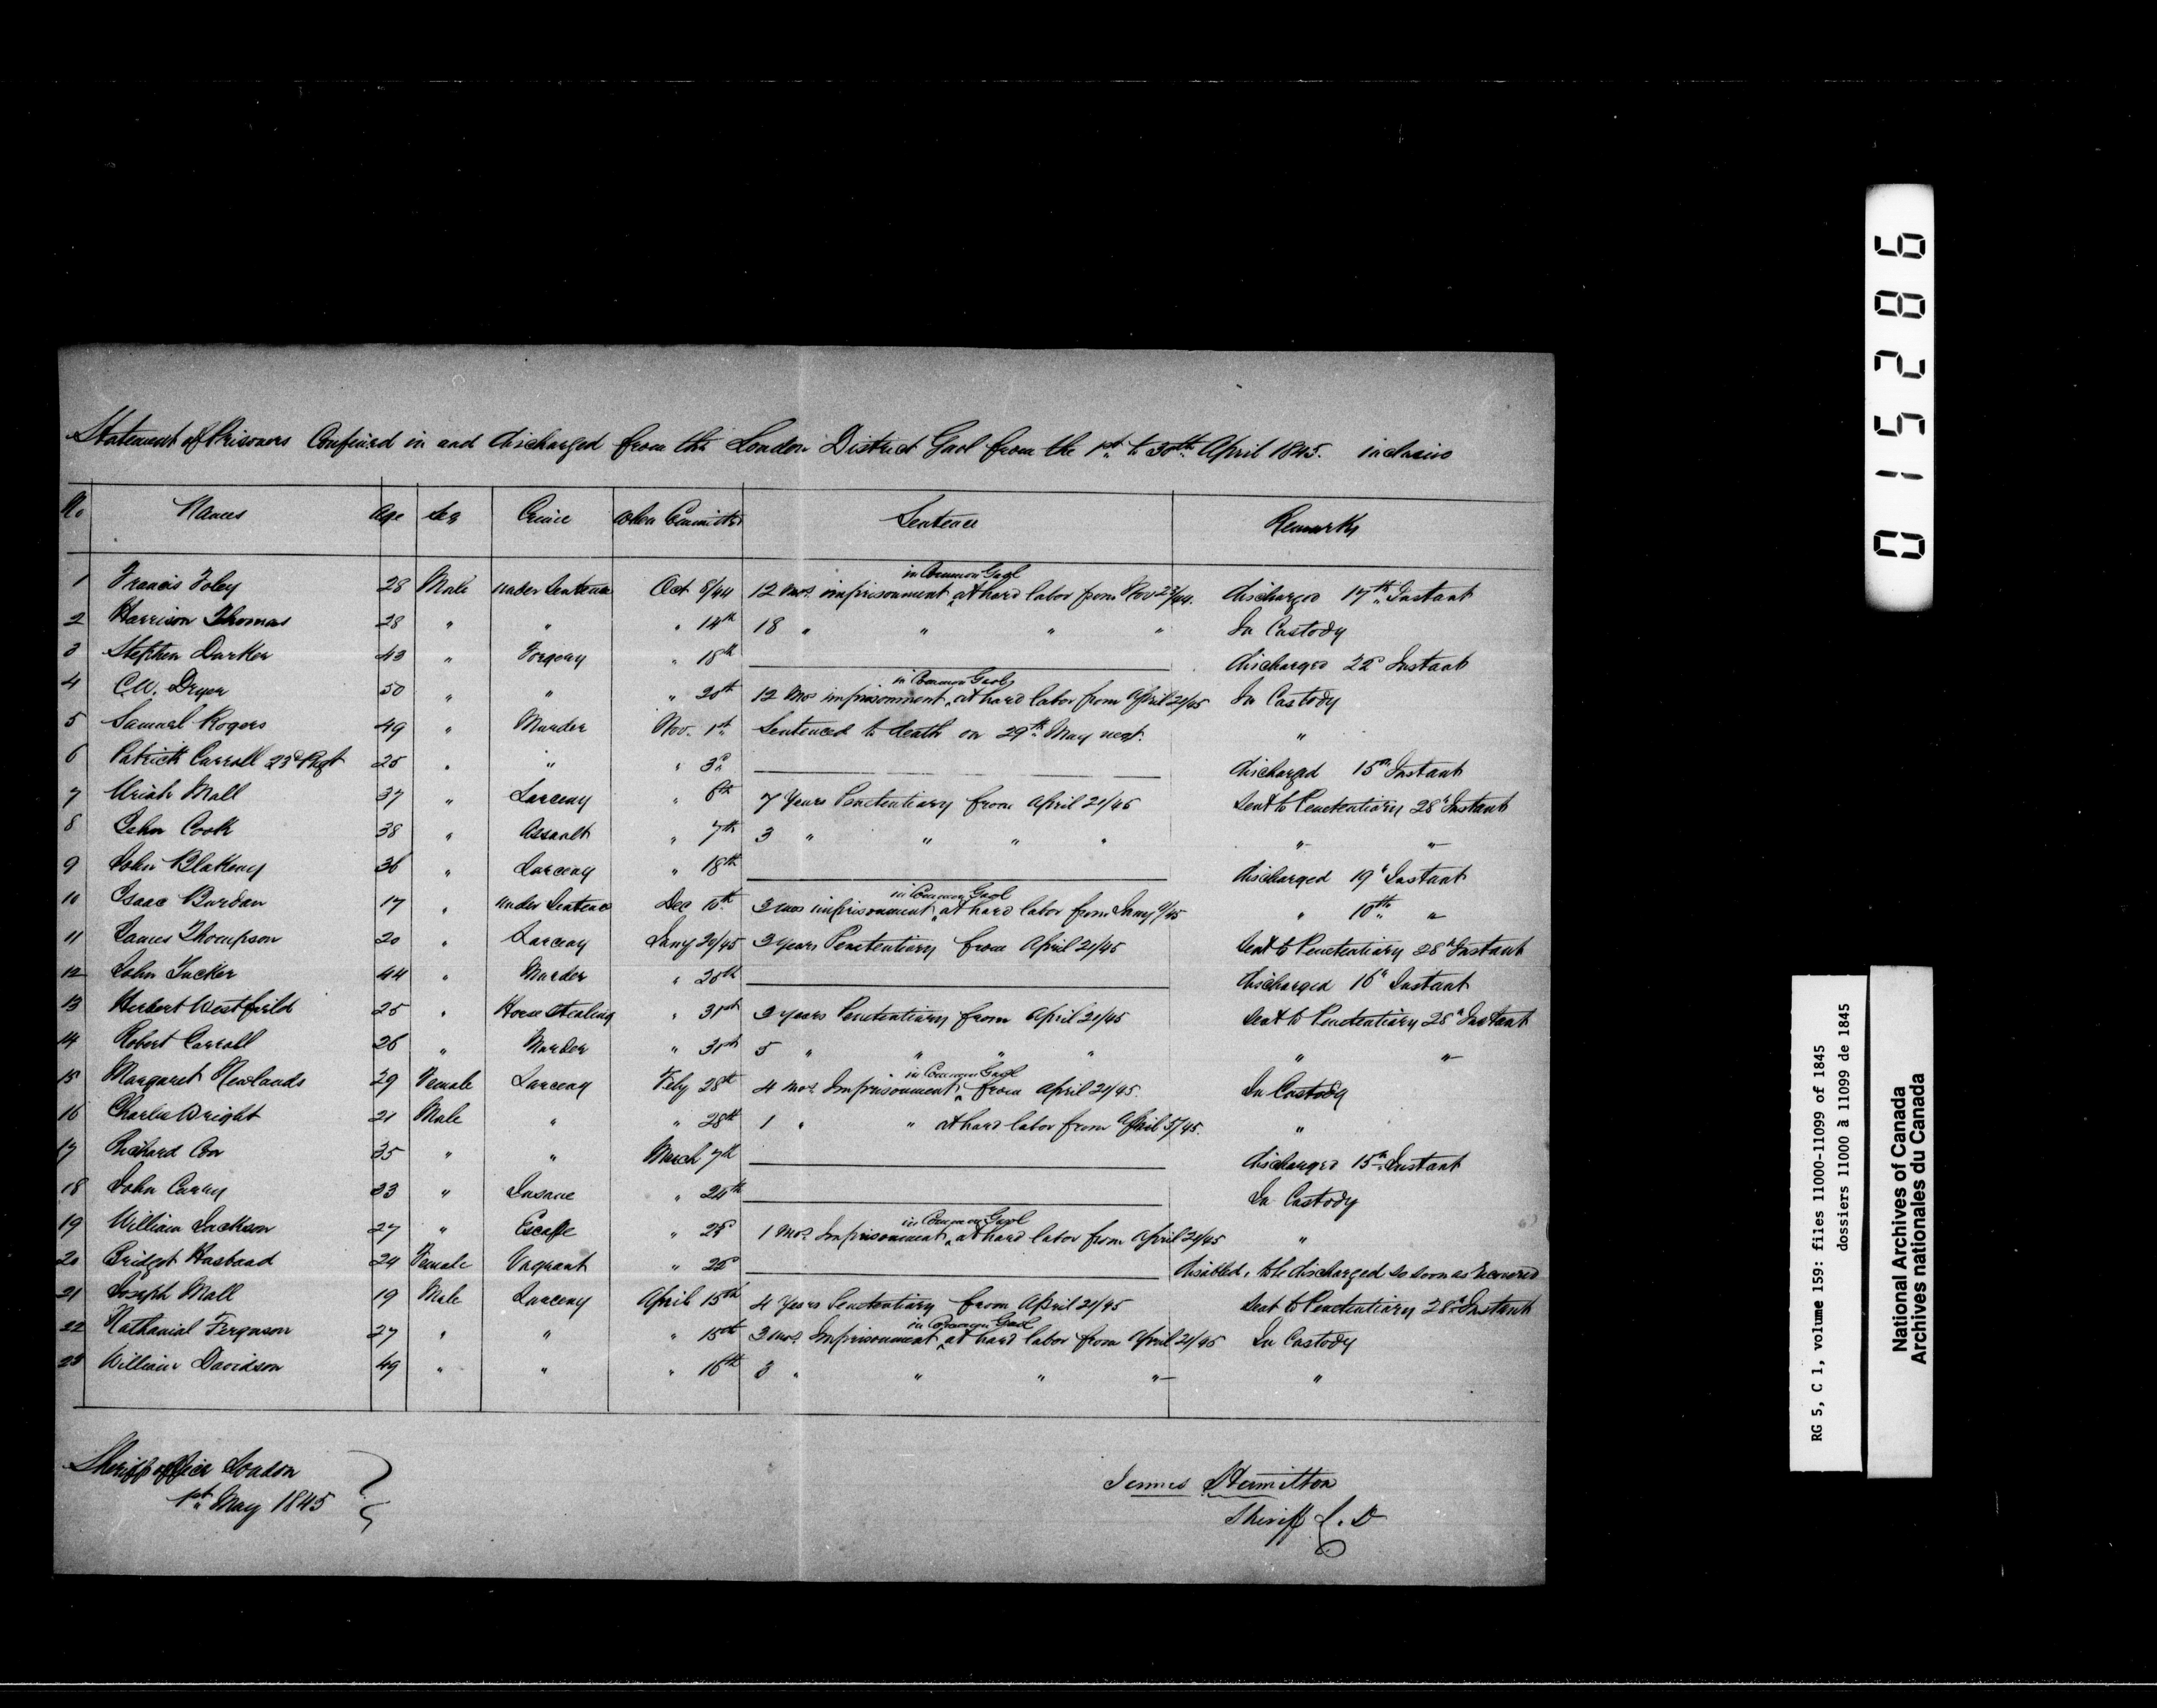 Statement of Prisoners Confined in and discharged from the London District Gaol from the 1st to 30th April 1845. inclusive
No Names Age Sex Crime When Committed Sentence Remarks
1 Francis Foley 28 Male under Sentence Oct 8/44 12 mos imprisonment in Common Gaol at hard labor from Nov 23/44. discharged 17th Instant
2 Harrison Thomas 28 " " " 14th 18 " " " " In Custody
3 Stephen Durker 43 " Forgery " 18th discharged 22d Instant
4 C.W. Dryer 50 " " " 20th 12 Mos imprisonment in Common Gaol at hard labor from April 21/45 In Custody
5 Samuel Rogers 49 " Murder Nov. 1st Sentenced to death on 29th May next. "
6 Patrick Carroll 23d Regt 25 " " " 3d discharged 15th Instant
7 Uriah Mall 37 " Larceny " 6th 7 Years Penetentiary from April 21/45 Sent to Penetentiary 28th Instant
8 John Cook 38 " Assault " 7th 3 " " " " " "
9 John Blakeny 36 " Larceny " 18th discharged 19th Instant
10 Isaac Burdan 17 " under Sentence Dec 10th 3 mos imprisonment in Common Gaol at hard labor from Jany /45 " 10th "
11 James Thompson 20 " Larceny Jany 20/45 3 years Penetentiary from April 21/45 Sent to Penetentiary 28th Instant
12 John Tucker 44 " Murder " 20th discharged 16th Instant
13 Herbert Westfield 25 " Horse Stealing " 31st 3 years Penetentiary from April 21/45 Sent to Penetentiary 28th Instant
14 Robert Carroll 26 " Murder " 31st 5 " " " " " "
15 Margaret Newlands 29 Female Larceny Feby 28th 4 mos Imprisonment in Common Gaol from April 21/45. In Custody
16 Charles Wright 21 Male " " 28th 1 " " at hard labor from April 5/45. "
17 Richard Cox 35 " " March 7th discharged 15th Instant
18 John Carey 33 " Insane " 24th In Custody
19 William Jackson 27 " Escape " 25th 1 Mos Imprisonment in Common Gaol at hard labor from April 21/45 "
20 Bridget Hasband 24 Female Vagrant " 22d disabled, to be discharged so soon as recovered
21 Joseph Mall 19 Male Larceny April 15th 4 Years Penetentiary from April 21/45 Sent to Penetentiary 28th Instant
22 Nathanial Ferguson 27 " " " 15th 3 mos Imprisonment in Common Gaol at hard labor from April 21/45 In Custody
23 William Davidson 49 " " " 16th 3 " " " " "
Sheriff office London
1st May 1845
James Hamilton
Sheriff L. D
015286
RG 5, C 1, volume 159: files 11000-11099 of 1845
dossiers 11000 à 11099 de 1845
National Archives of Canada
Archives nationales du Canada